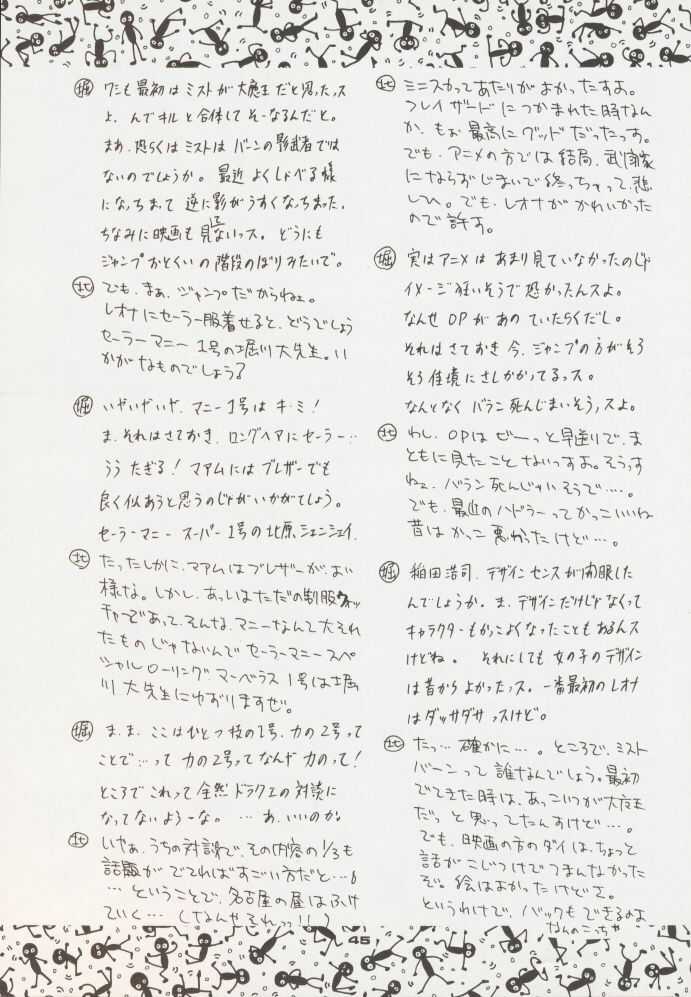 北 ミニスカってあたりがよかったすよ。
フレイザードにつかまれた時なん
か、もぉ最高にグッドだったっす。
でも、アニメの方では結局、武闘家
にならずじまいで終っちゃって、悲
しひ。でも、レオナがかわいかった
ので許す。
堀 実はアニメはあまり見ていなかったのじゃ
イメージ狂いそうで恐かったんスよ。
なんせOPがあのていたらくだし。
それはさておき今、ジャンプの方がそろ
そろ佳境にさしかかってるっス。
なんとなくバラン死んじまいそうっスよ。
北 わし、OPはぜーっと早送りで、ま
ともに見たことないっすよ。そうっす
ねェ、バラン死んじゃいそうで…。
でも、最近のハドラーってかっこいいね
昔はかっこ悪かったけど…。
堀 稲田浩司、デザインセンスが開眼した
んでしょうか。ま、デザインだけじゃなくって
キャラクターもかっこよくなったこともあるんス
けどね。 それにしても女の子のデザイン
は昔からよかったっス。一番最初のレオナ
はダッサダサっスけど。
北 たっ…確かに…。ところで、ミスト
バーンって誰なんでしょう。最初
でてきた時は、あっこいつが大魔王
だっと思ってたんすけど…。
でも、映画の方のダイは、ちょっと
話がこじつけでつまんなかった
ぞ。絵はよかったけどさ。
というわけで、バックもできるのよ
なんのこっちゃ
堀 ワシも最初はミストが大魔王だと思ったっス
よ、んでキルと合体してそーなるんだと。
まあ、恐らくはミストはバーンの影武者では
ないのでしょうか。最近よくしゃべる様
になっちまって逆に影がうすくなっちまった。
ちなみに映画も見てないっス。どうにも
ジャンプおとくいの階段のぼりみたいで。
北 でも、まぁ、ジャンプだからねェ。
レオナにセーラー服着せると、どうでしょう
セーラーマニー1号の堀川大先生。い
かがなものでしょう？
堀 いやいやいや、マニー1号はキ・ミ！
ま、それはさておき、ロングヘアにセーラー…
うう たぎる！マァムにはブレザーでも
良く似あうと思うのじゃがいかがでしょう。
セーラーマニースーパー1号の北原シェンシェイ。
北 たったしかに、マァムはブレザーが、よい
様な。しかし、あっしはただの制服ウォッ
チャーであって、そんな、マニーなんて大それ
たものじゃないんでセーラーマニースペ
シャルローリングマーベラス1号は堀
川大先生にゆずりますぜ。
堀 ま、ま、ここはひとつ技の1号、力の2号って
ことで…って力の2号ってなんや力のって！
ところでこれって全然ドラクエの対談に
なってないよーな。 …あ、いいのか。
北 いやぁ、うちの対談で、その内容の1/3も
話題がでてればすごい方だと…。
…ということで、名古屋の昼はふけ
ていく…（なんやそれっ！！）
45